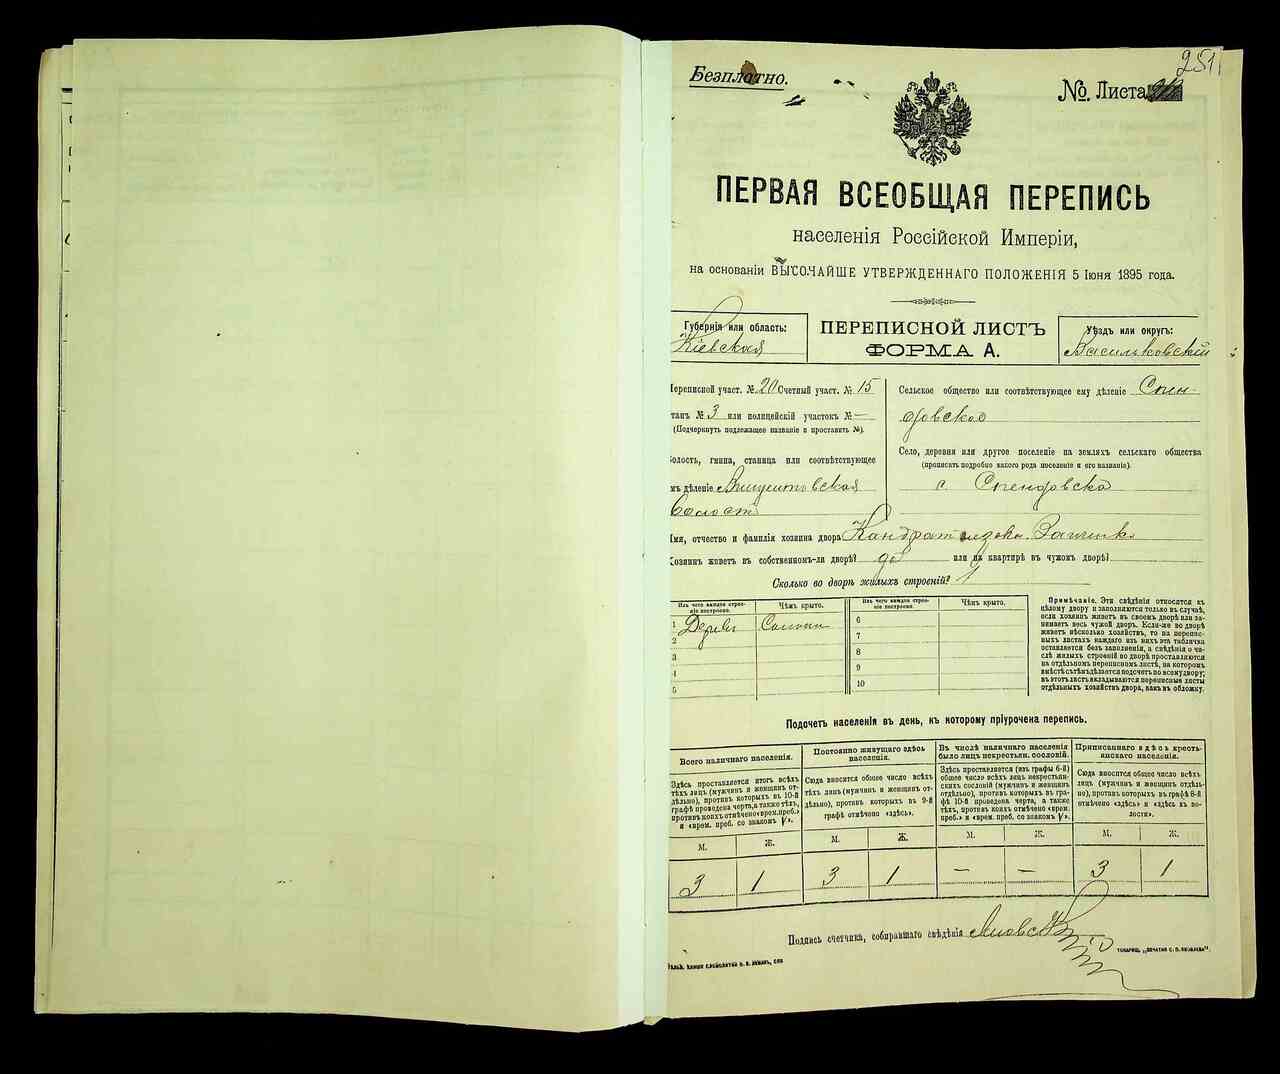 251
Безплатно.
№ Листа
ПЕРВАЯ ВСЕОБЩАЯ ПЕРЕПИСЬ
населенія Россійской Имперіи,
на основаніи ВЫСОЧАЙШЕ УТВЕРЖДЕННАГО ПОЛОЖЕНІЯ 5 Іюня 1895 года.
Губернія или область:
Кіевская
ПЕРЕПИСНОЙ ЛИСТЪ
ФОРМА А.
Уѣздъ или округъ:
Васильковскій
Переписной участ. № 20 Счетный участ. № 15
станъ № 3 или полицейскій участокъ № —
(Подчеркнуть подлежащее названіе и проставить №).
Волость, гмина, станица или соотвѣтствующее
имъ дѣленіе
Волость
Сельское общество или соотвѣтствующее ему дѣленіе Спен-
довское
Село, деревня или другое поселеніе на земляхъ сельскаго общества
(прописать подробно какого рода поселеніе и его названіе).
с. Спендовско
Имя, отчество и фамилія хозяина двора Кондрат
Хозяинъ живетъ въ собственномъ-ли дворѣ? да или на квартирѣ въ чужомъ дворѣ?
Сколько во дворѣ жилыхъ строеній? 1
Изъ чего каждое строеніе построено.
Чѣмъ крыто.
Изъ чего каждое строеніе построено.
Чѣмъ крыто.
1 Дерев. Солом.
2
3
4
5
6
7
8
9
10
Примѣчаніе. Эти свѣдѣнія относятся къ
цѣлому двору и заполняются только въ случаѣ,
если хозяинъ живетъ въ своемъ дворѣ или занимаетъ весь чужой дворъ. Если-же во дворѣ
живетъ нѣсколько хозяйствъ, то на переписныхъ листахъ каждаго изъ нихъ эта табличка
оставляется безъ заполненія, а свѣдѣнія о числѣ жилыхъ строеній во дворѣ проставляются
на отдѣльномъ переписномъ листѣ, на которомъ
вмѣстѣ съ тѣмъ дѣлается подсчетъ по всему двору;
въ этотъ листъ вкладываются переписные листы
отдѣльныхъ хозяйствъ двора, какъ въ обложку.
Подсчетъ населенія въ день, къ которому пріурочена перепись.
Всего наличнаго населенія.
Здѣсь проставляется итогъ всѣхъ
тѣхъ лицъ (мужчинъ и женщинъ отдѣльно), противъ которыхъ въ 10-й
графѣ проведена черта, а также тѣхъ,
противъ коихъ отмѣчено «врем. преб.»
и «врем. преб. со знакомъ V».
Постоянно живущаго здѣсь
населенія.
Сюда вносится общее число всѣхъ
тѣхъ лицъ (мужчинъ и женщинъ отдѣльно), противъ которыхъ въ 9-й
графѣ отмѣчено «здѣсь».
Въ числѣ наличнаго населенія
было лицъ некрестьян. сословій.
Здѣсь проставляется (изъ графы 6-й)
общее число всѣхъ лицъ некрестьянскихъ сословій (мужчинъ и женщинъ
отдѣльно), противъ которыхъ въ графѣ 10-й проведена черта, а также
тѣхъ, противъ коихъ отмѣчено «врем.
преб.» и «врем. преб. со знакомъ V».
Приписаннаго здѣсь крестьянскаго населенія.
Сюда вносится общее число всѣхъ
лицъ (мужчинъ и женщинъ отдѣльно), противъ которыхъ въ графѣ 8-й
отмѣчено «здѣсь» и «здѣсь въ волости».
М. Ж. М. Ж. М. Ж. М. Ж.
3 1 3 1 — — 3 1
Подпись счетчика, собиравшаго свѣдѣнія
ТОВАРИЩ. „ПЕЧАТНЯ С. П. ЯКОВЛЕВА“.